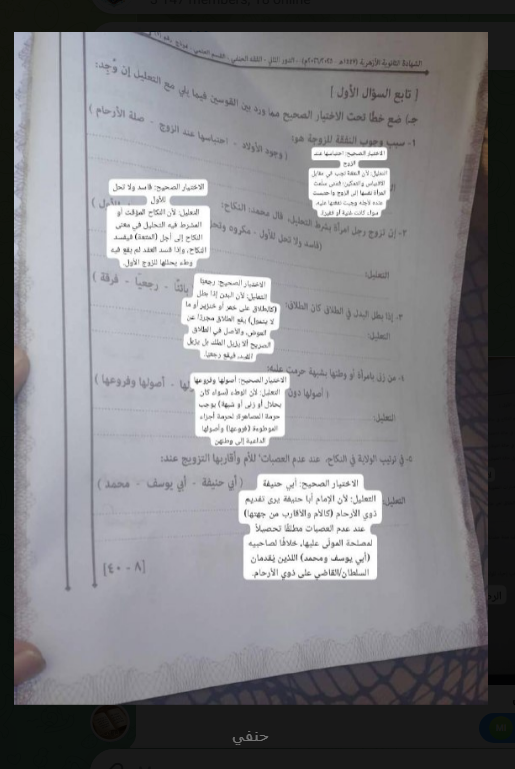 الشهادة الثانوية الأزهرية
الدور الثاني - الفقه الحنفي - القسم العلمي
[ تابع السؤال الأول ]
جـ) ضع خطًا تحت الاختيار الصحيح مما ورد بين القوسين فيما يلي مع التعليل إن وُجِد:
١- سبب وجوب النفقة للزوجة هو:
( وجود الأولاد - احتباسها عند الزوج - صلة الأرحام )
الاختيار الصحيح: احتباسها عند
الزوج
التعليل: لأن النفقة تجب في مقابل
٢- إن تزوج رجل امرأة بشرط التحليل، قال محمد: النكاح:
(فاسد ولا تحل للأول - مكروه وتحل
الاختيار الصحيح: فاسد ولا تحل
للأول
التعليل: لأن النكاح المؤقت أو
المشترط فيه التحليل في معنى
النكاح إلى أجل (المتعة) فيفسد
النكاح، وإذا فسد العقد لم يقع فيه
وطء يحللها للزوج الأول.
التعليل:
٣- إذا بطل البدل في الطلاق كان الطلاق:
بائنًا - رجعيًا - فرقة )
الاختيار الصحيح: رجعيًا
التعليل: لأن البدل إذا بطل
(كالطلاق على خمر أو خنزير أو ما
لا يتمول) يقع الطلاق مجردًا عن
العوض، والأصل في الطلاق
الصريح ألا يزيل الملك بل يزيل
القيد، فيقع رجعيا.
التعليل:
٤- من زنى بامرأة أو وطئها بشبهة حرمت عليه:
( أصولها دون
- أصولها وفروعها )
الاختيار الصحيح: أصولها وفروعها
التعليل: لأن الوطء (سواء كان
بحلال أو زنى أو شبهة) يوجب
حرمة المصاهرة؛ لحرمة أجزاء
الموطوءة (فروعها) وأصولها
الداعية إلى وطئهن
التعليل:
٥- في ترتيب الولاية في النكاح، عند عدم العصبات للأم وأقاربها التزويج عند:
( أبي حنيفة - أبي يوسف - محمد )
الاختيار الصحيح: أبي حنيفة
التعليل: لأن الإمام أبا حنيفة يرى تقديم
ذوي الأرحام (كالأم والأقارب من جهتها)
عند عدم العصبات مطلقًا تحصيلاً
لمصلحة المولّى عليها، خلافًا لصاحبيه
(أبي يوسف ومحمد) اللذين يُقدمان
السلطان/القاضي على ذوي الأرحام.
التعليل:
[٨ - ٤٠]
حنفي